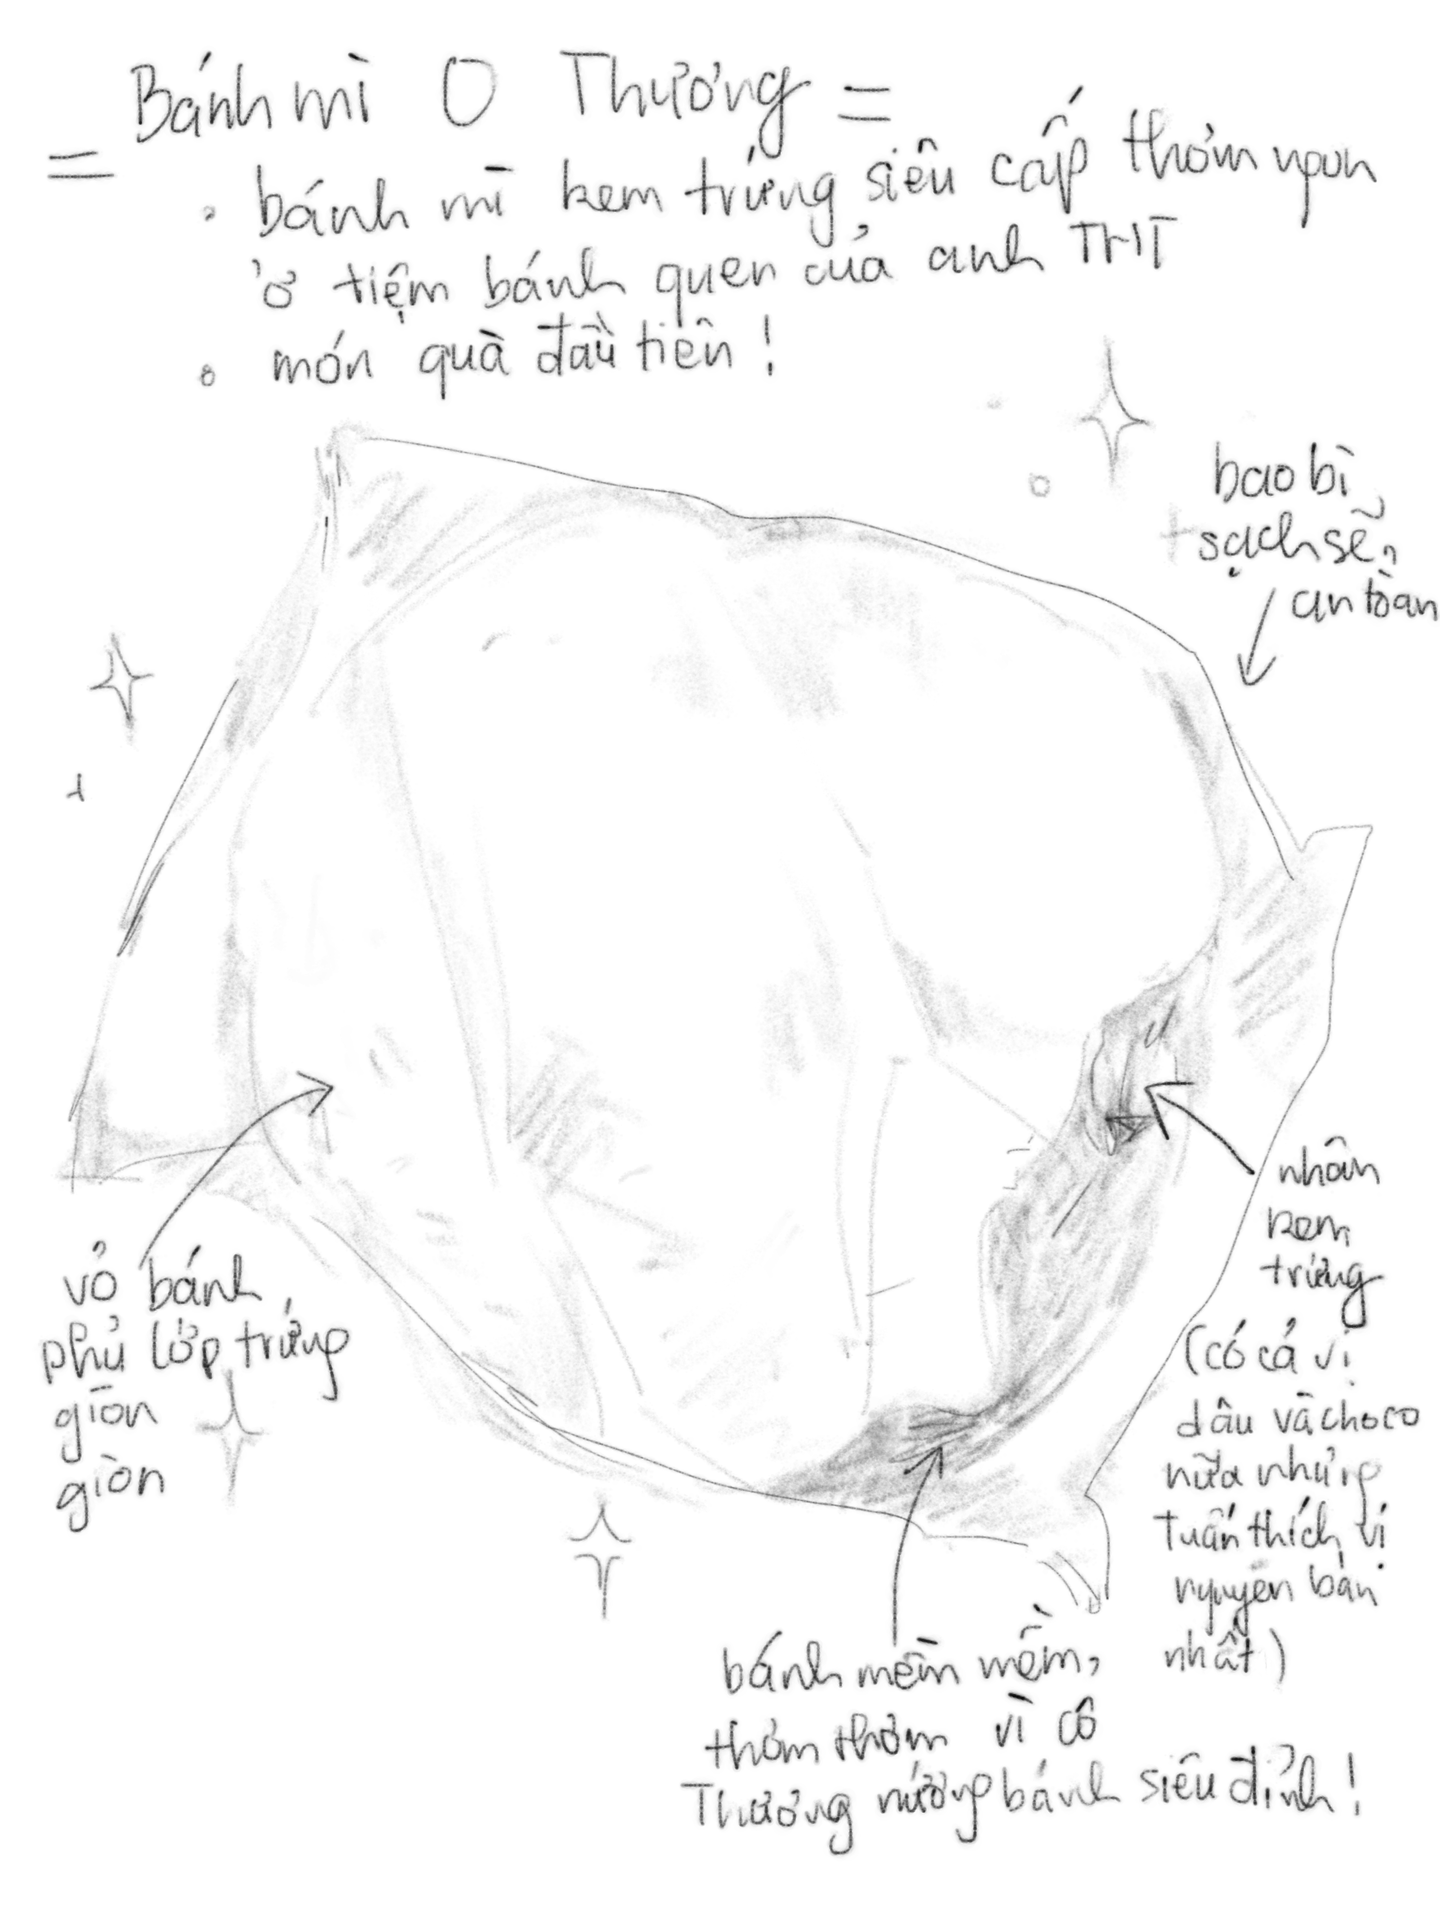 = Bánh mì O Thương =
• bánh mì kem trứng siêu cấp thơm ngon
ở tiệm bánh quen của anh THT
• món quà đầu tiên!
bao bì
+ sạch sẽ,
an toàn
vỏ bánh
phủ lớp trứng
giòn
giòn
nhân
kem
trứng
(có cả vị
dâu và choco
nữa nhưng
Tuấn thích vị
nguyên bản
nhất)
bánh mềm mềm,
thơm thơm vì cô
Thương nướng bánh siêu đỉnh!